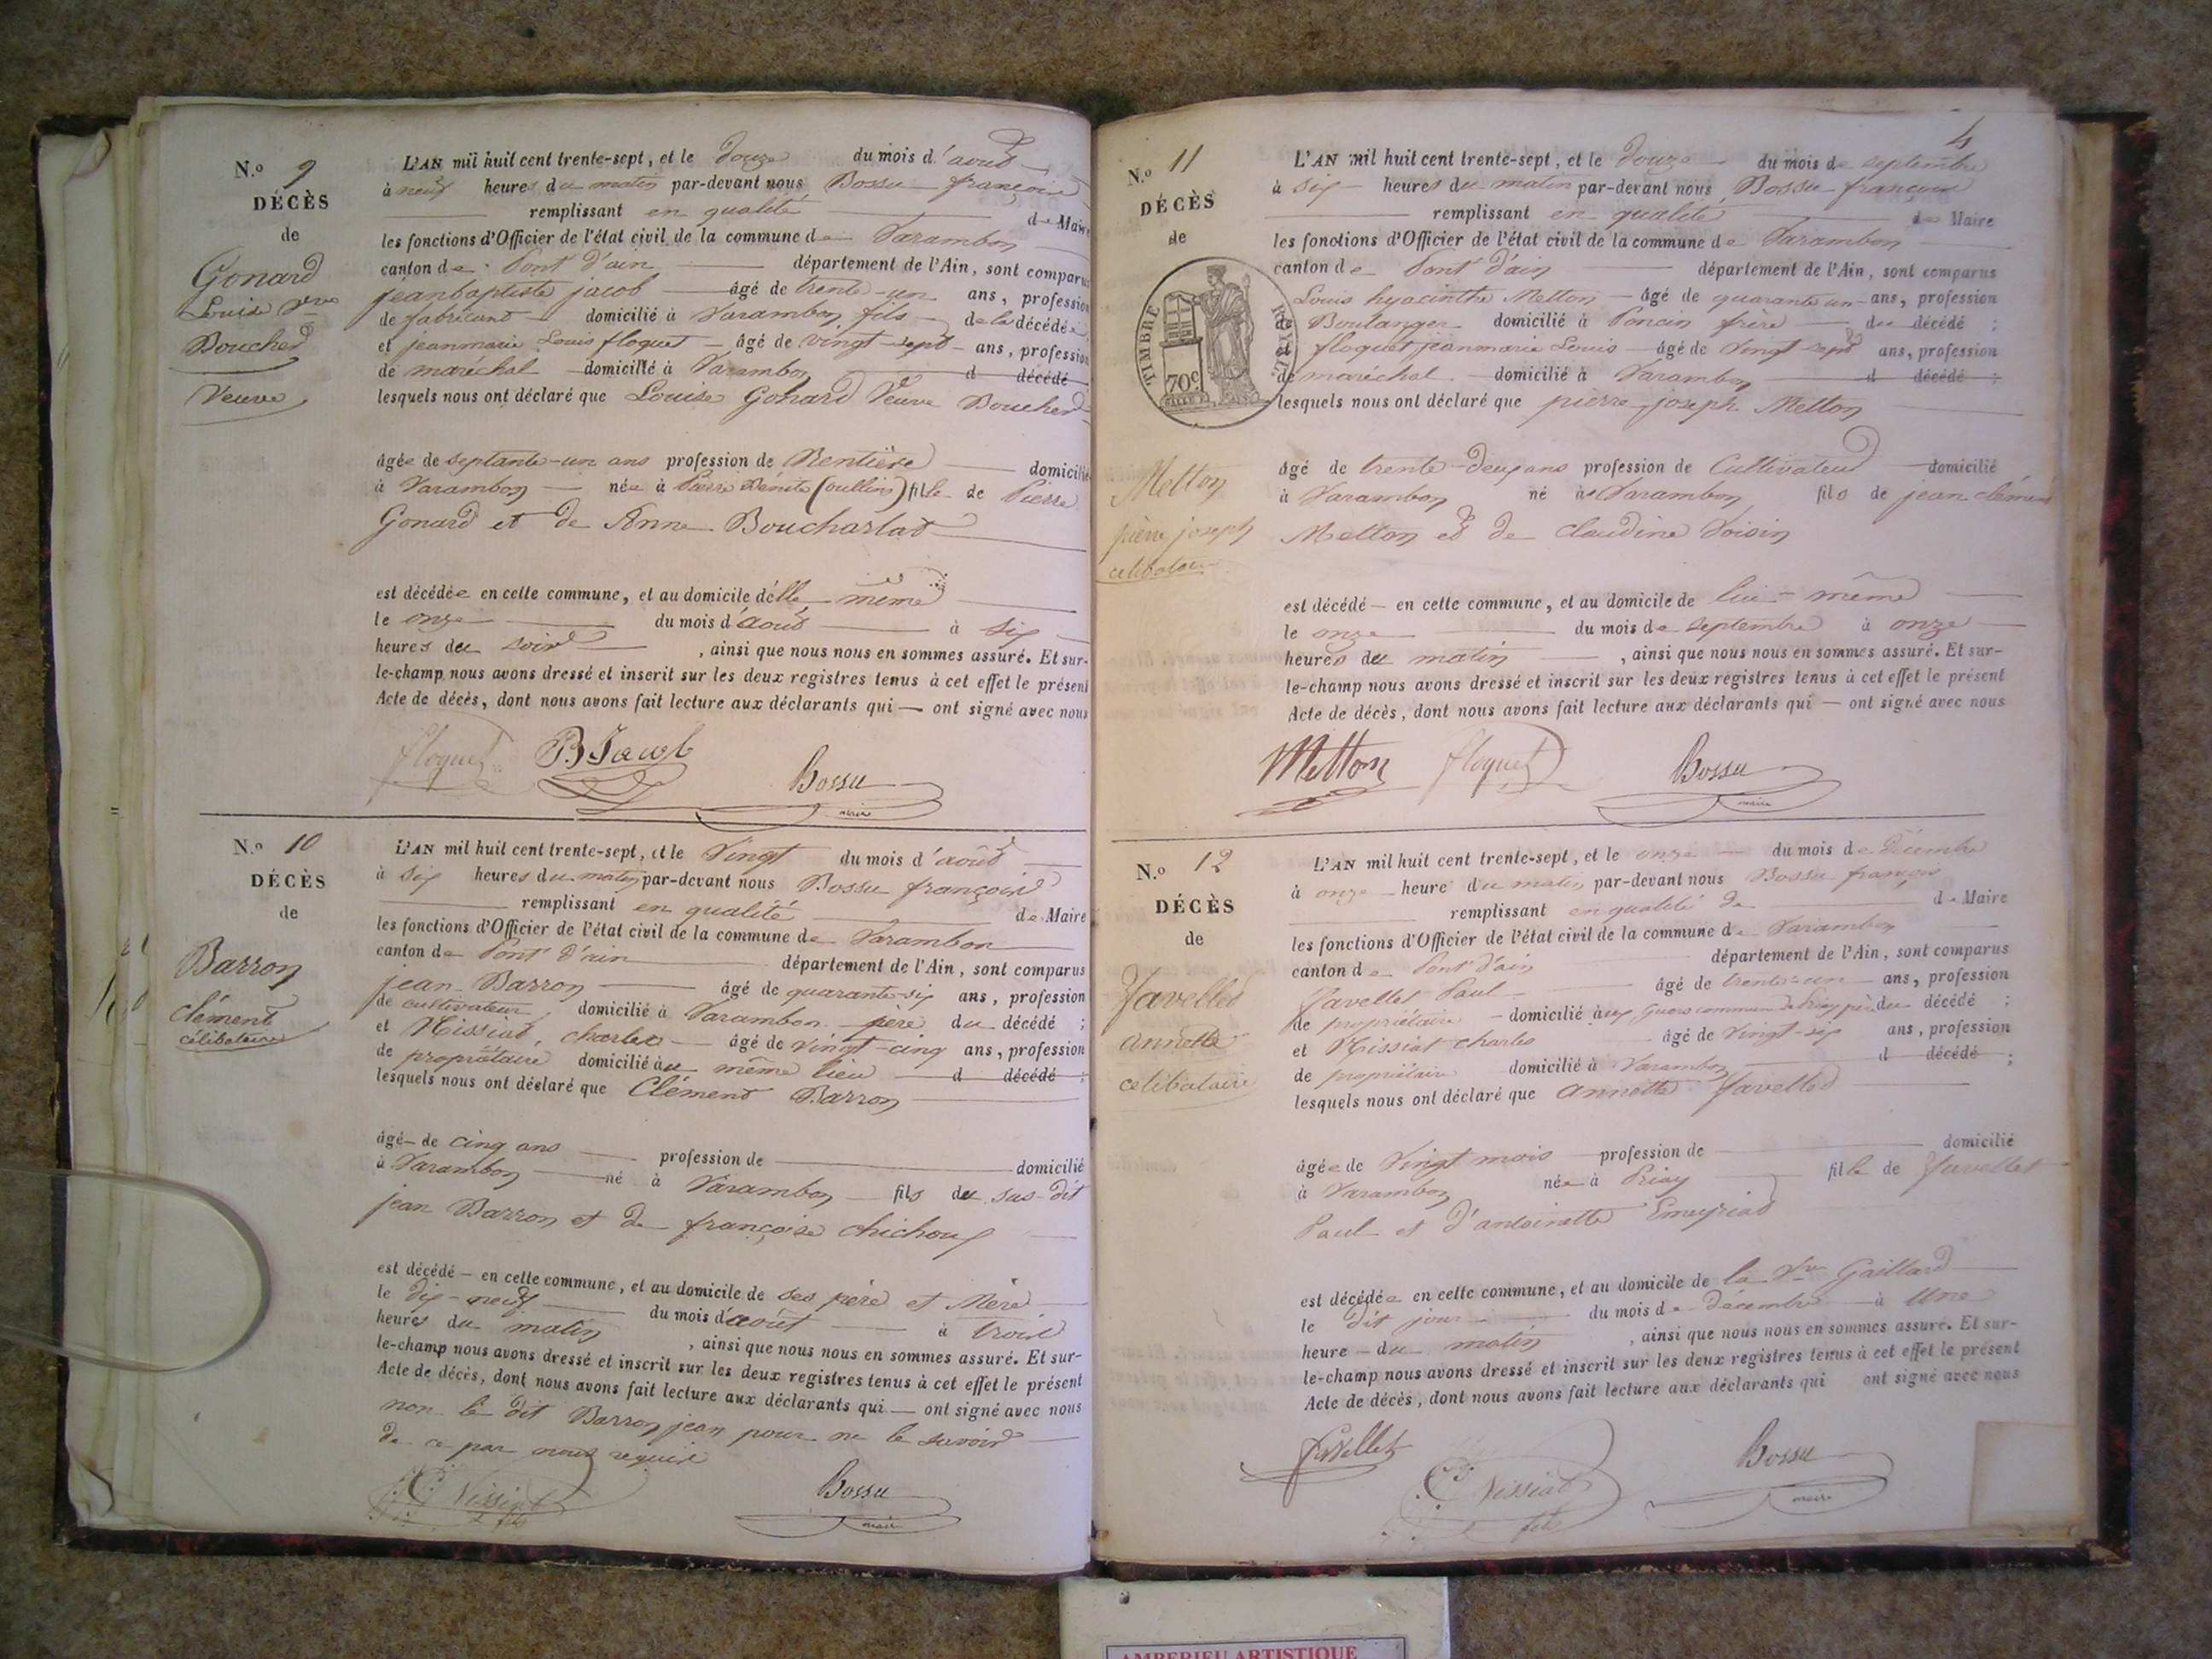 N.º 9
DÉCÈS
de
Gonard
Louise Vve
Boucher
Veuve
L'AN mil huit cent trente-sept, et le Douze du mois d'août
à neuf heures du matin par-devant nous Bossu françois
remplissant en qualité de Maire
les fonctions d'Officier de l'état civil de la commune de Varambon
canton de Pont d'ain département de l'Ain, sont comparus
jean baptiste jacob âgé de trente-un ans, profession
de fabricant domicilié à Varambon fils de la décédée
et jeanmarie Louis floquet âgé de vingt-sept ans, profession
de maréchal domicilié à Varambon d décédé
lesquels nous ont déclaré que Louise Gonard Veuve Boucher
âgée de septante-un ans profession de Rentière domicilié
à Varambon née à Pierre Bénite (oullins) fille de Pierre
Gonard et de Anne Boucharlat
est décédée en cette commune, et au domicile d'elle même
le onze du mois d'août à six
heures du soir, ainsi que nous nous en sommes assuré. Et sur-
le-champ nous avons dressé et inscrit sur les deux registres tenus à cet effet le présent
Acte de décès, dont nous avons fait lecture aux déclarants qui — ont signé avec nous
floquet B. Jacob Bossu
maire
N.º 10
DÉCÈS
de
Barron
clément
célibataire
L'AN mil huit cent trente-sept, et le Vingt du mois d'août
à six heures du matin par-devant nous Bossu françois
remplissant en qualité de Maire
les fonctions d'Officier de l'état civil de la commune de Varambon
canton de Pont d'ain département de l'Ain, sont comparus
jean Barron âgé de quarante-six ans, profession
de cultivateur domicilié à Varambon père du décédé ;
et Nissiat, charles âgé de vingt-cinq ans, profession
de propriétaire domicilié au même lieu d décédé ;
lesquels nous ont déclaré que Clément Barron
âgé de cinq ans profession de domicilié
à Varambon né à Varambon fils du sus-dit
jean Barron et de françoise chichoux
est décédé — en cette commune, et au domicile de ses père et Mère
le dix-neuf du mois d'août à trois
heures du matin, ainsi que nous nous en sommes assuré. Et sur-
le-champ nous avons dressé et inscrit sur les deux registres tenus à cet effet le présent
Acte de décès, dont nous avons fait lecture aux déclarants qui — ont signé avec nous
non le dit Barron jean pour ne le savoir
de ce par nous requis
C. Nissiat Bossu
fils maire
4
N.º 11
DÉCÈS
de
TIMBRE ROYAL
70c
Metton
pierre joseph
célibataire
L'AN mil huit cent trente-sept, et le douze du mois de septembre
à six heures du matin par-devant nous Bossu françois
remplissant en qualité de Maire
les fonctions d'Officier de l'état civil de la commune de Varambon
canton de Pont d'ain département de l'Ain, sont comparus
Louis hyacinthe Metton âgé de quarante un ans, profession
de Boulanger domicilié à Poncin frère du décédé ;
et floquet jeanmarie Louis âgé de Vingt-sept ans, profession
de maréchal domicilié à Varambon d décédé ;
lesquels nous ont déclaré que pierre joseph Metton
âgé de trente-deux ans profession de Cultivateur domicilié
à Varambon né à Varambon fils de jean clément
Metton et de Claudine Voisin
est décédé — en cette commune, et au domicile de lui-même
le onze du mois de septembre à onze
heures du matin, ainsi que nous nous en sommes assuré. Et sur-
le-champ nous avons dressé et inscrit sur les deux registres tenus à cet effet le présent
Acte de décès, dont nous avons fait lecture aux déclarants qui — ont signé avec nous
Metton floquet Bossu
maire
N.º 12
DÉCÈS
de
Javellet
annette
célibataire
L'AN mil huit cent trente-sept, et le onze du mois de Décembre
à onze heure du matin par-devant nous Bossu françois
remplissant en qualité de de Maire
les fonctions d'Officier de l'état civil de la commune de Varambon
canton de Pont d'ain département de l'Ain, sont comparus
Javellet Paul âgé de trente-un ans, profession
de propriétaire domicilié commune de Priay père du décédé ;
et Nissiat charles âgé de Vingt-six ans, profession
de propriétaire domicilié à Varambon d décédé ;
lesquels nous ont déclaré que annette Javellet
âgée de Vingt mois profession de domicilié
à Varambon née à Priay fille de Javellet
Paul et d'antoinette Emeyriat
est décédée en cette commune, et au domicile de la Vve Gaillard
le dit jour du mois de décembre à Une
heure du matin, ainsi que nous nous en sommes assuré. Et sur-
le-champ nous avons dressé et inscrit sur les deux registres tenus à cet effet le présent
Acte de décès, dont nous avons fait lecture aux déclarants qui ont signé avec nous
Javellet C. Nissiat Bossu
fils maire
AMBERIEU ARTISTIQUE